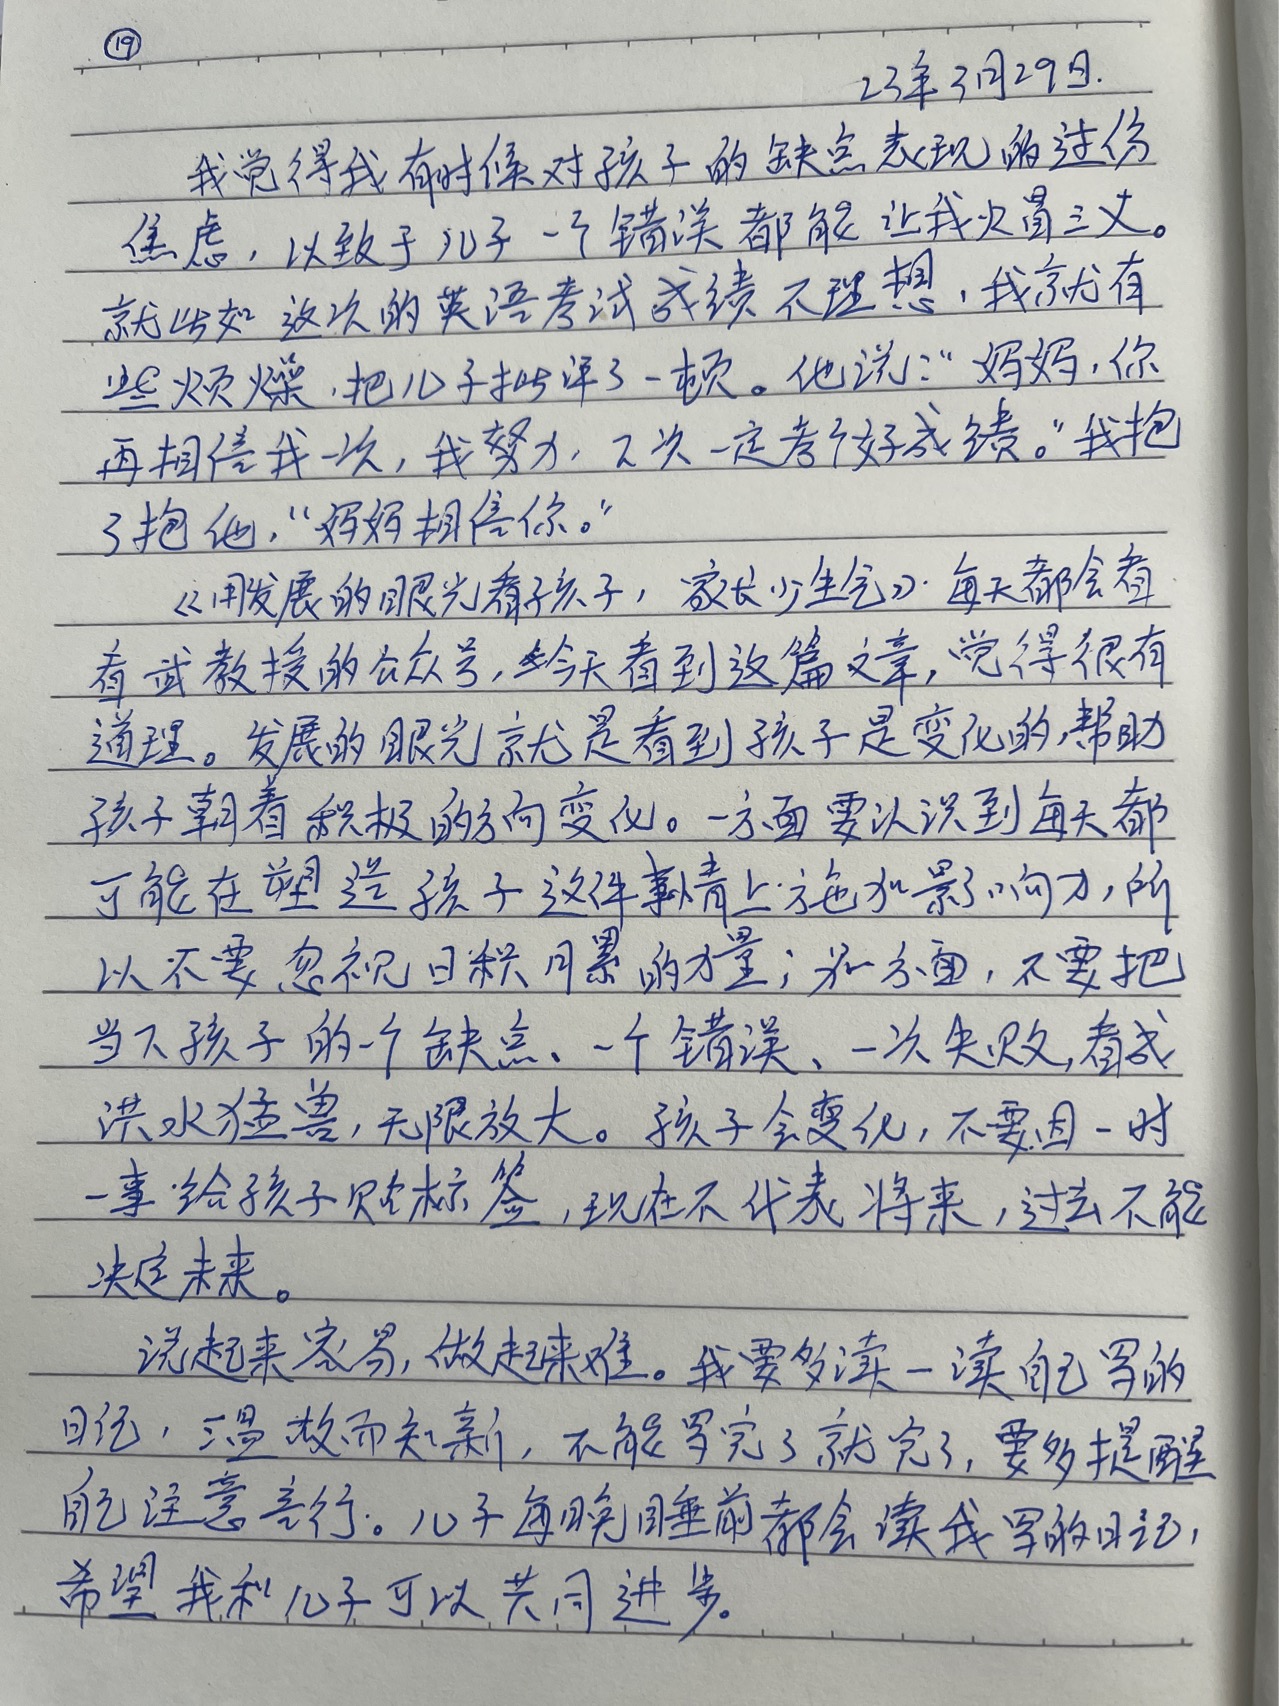 ⑲
23年3月29日.
我觉得我有时候对孩子的缺点表现的过份
焦虑，以致于儿子一个错误都能让我火冒三丈。
就比如这次的英语考试成绩不理想，我就有
些烦燥，把儿子批评了一顿。他说：“妈妈，你
再相信我一次，我努力，下次一定考个好成绩。”我抱
了抱他，“妈妈相信你。”
《用发展的眼光看孩子，家长少生气》.每天都会看
看武教授的公众号，今天看到这篇文章，觉得很有
道理。发展的眼光就是看到孩子是变化的，帮助
孩子朝着积极的方向变化。一方面要认识到每天都
可能在塑造孩子这件事情上施加影响力，所
以不要忽视日积月累的力量；另一方面，不要把
当下孩子的一个缺点、一个错误、一次失败，看成
洪水猛兽，无限放大。孩子会变化，不要因一时
一事给孩子贴标签，现在不代表将来，过去不能
决定未来。
说起来容易，做起来难。我要多读一读自己写的
日记，温故而知新，不能写完了就完了，要多提醒
自己注意言行。儿子每晚睡前都会读我写的日记，
希望我和儿子可以共同进步。